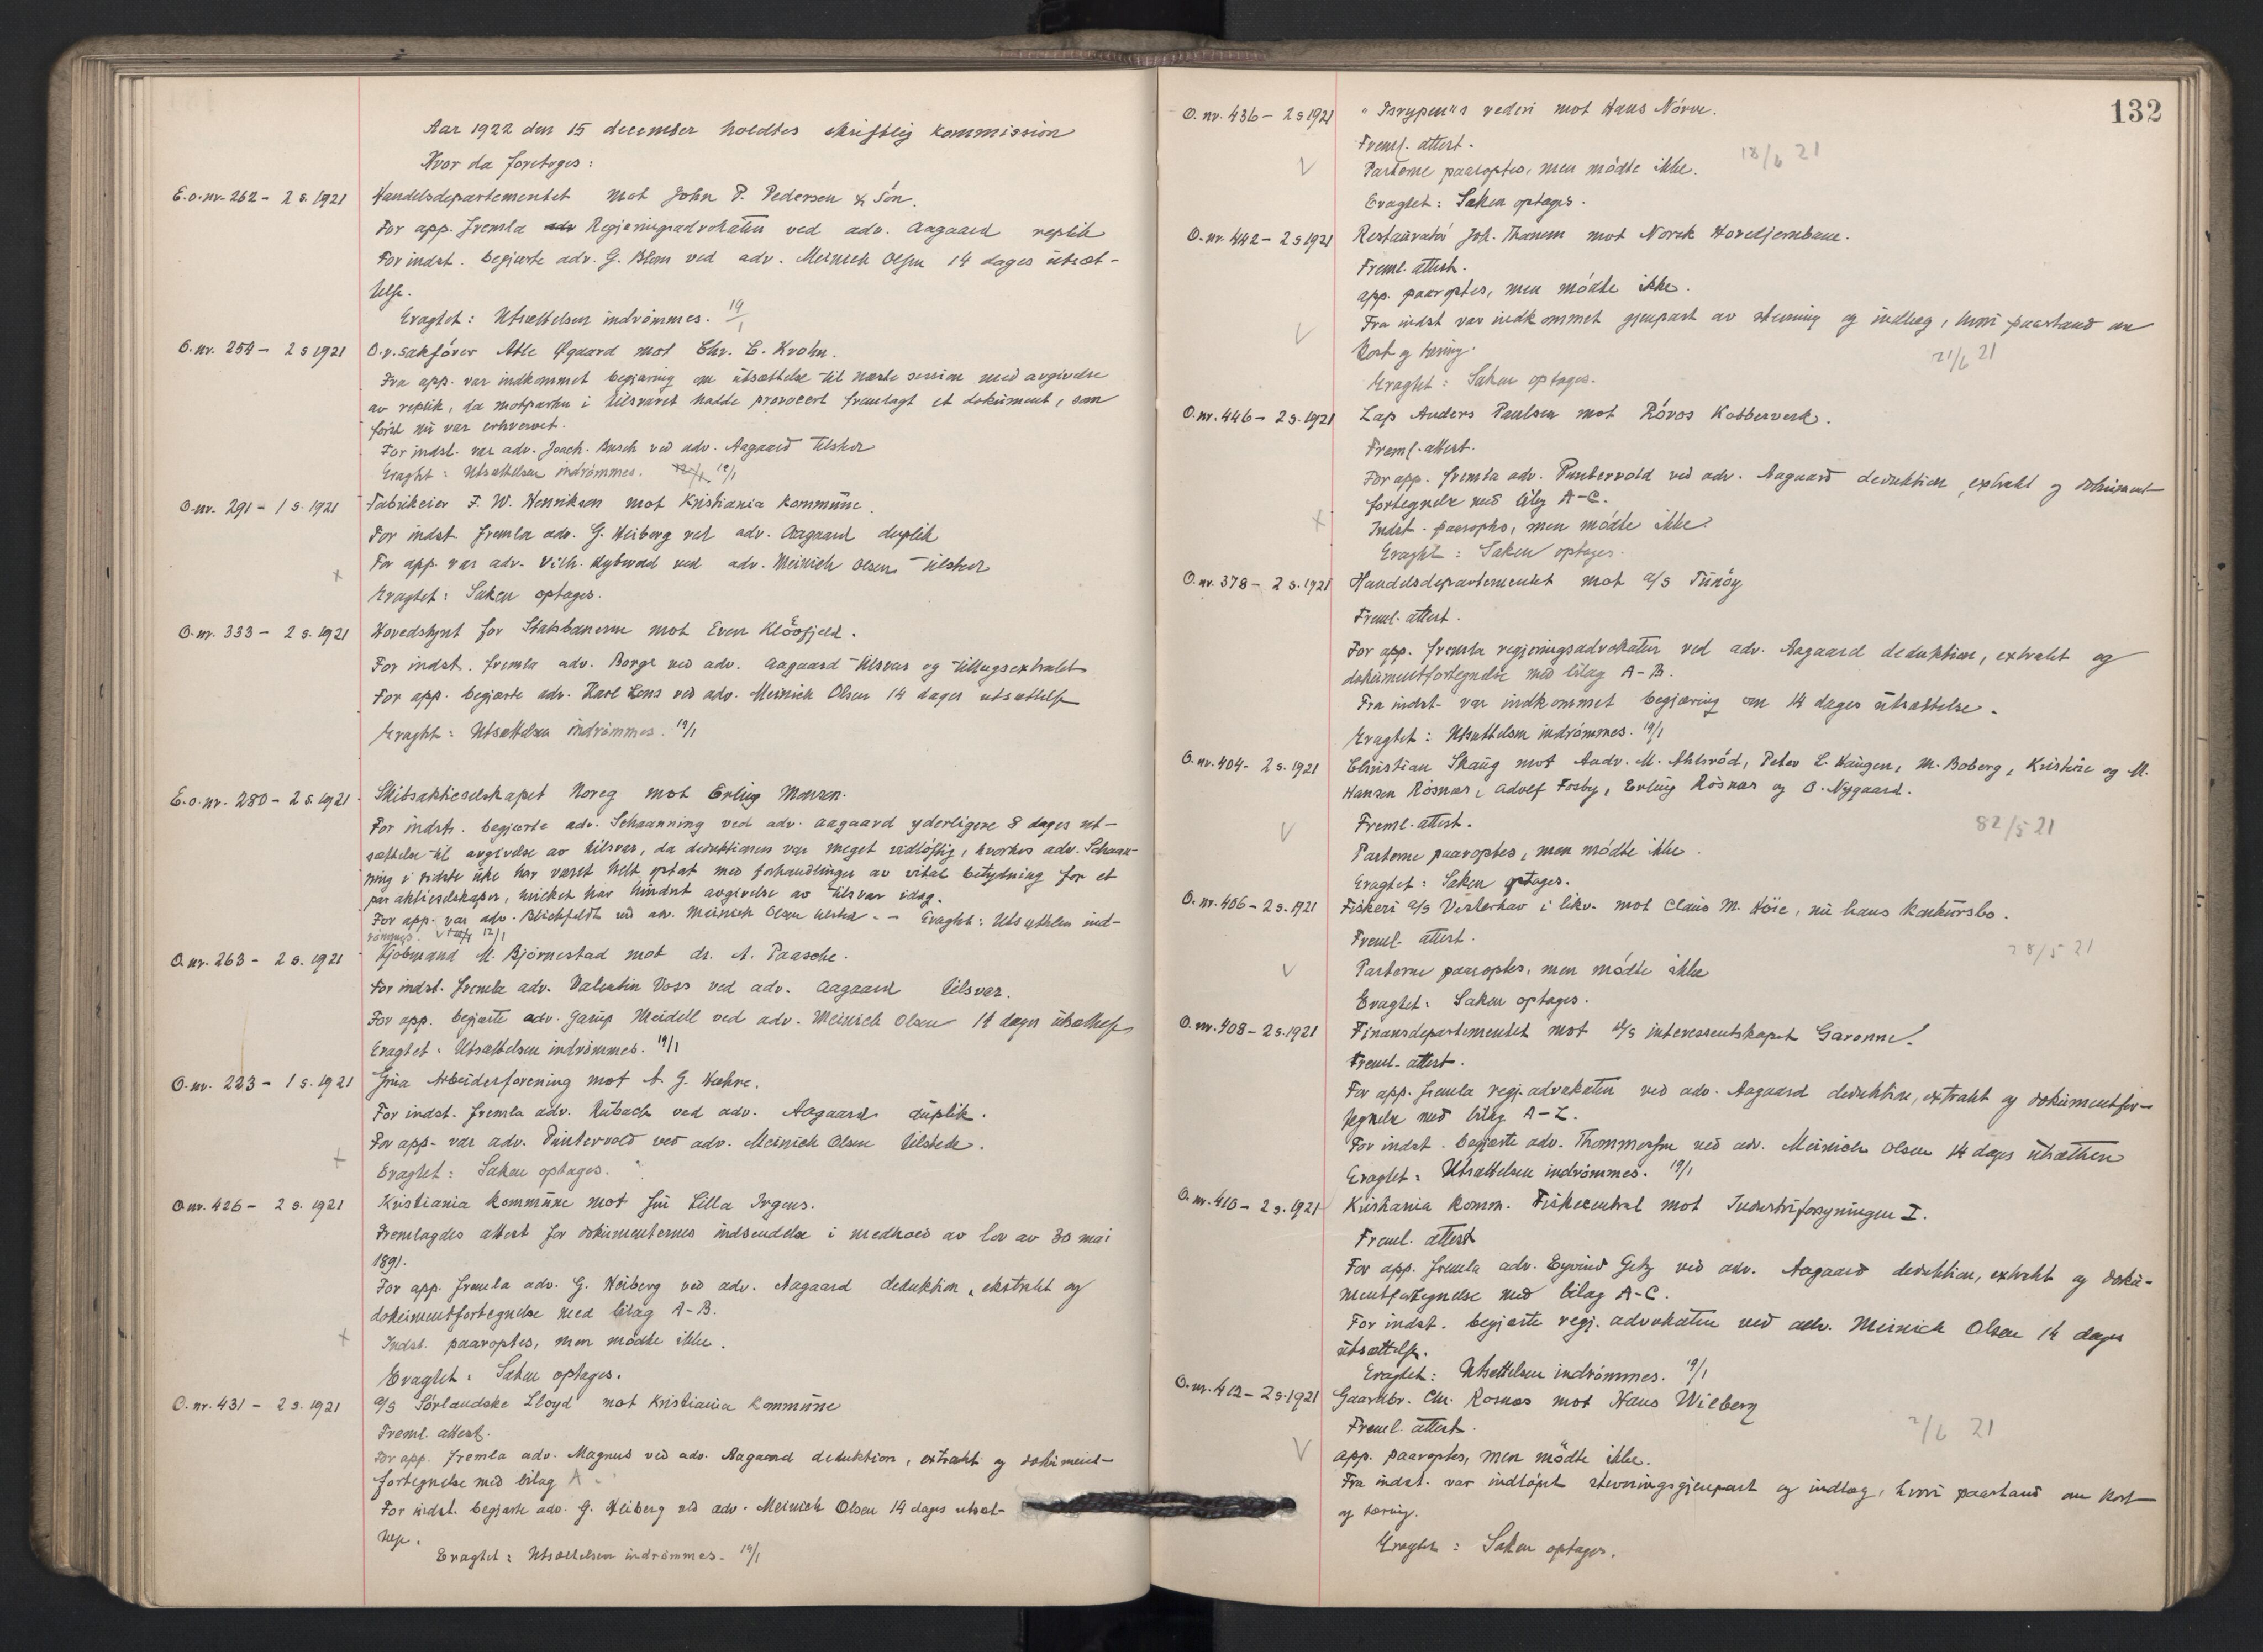 Aar 1922 den 15 december holdtes skriftlig kommission
Hvor da foretoges:
E.o.nr. 262 - 2 s. 1921 Handelsdepartementet mot John P. Pedersen & Søn.
For app. fremla adv Regjeringsadvokaten ved adv. Aagaard replik
For indst. begjærte adv. G. Blom ved adv. Meinich Olsen 14 dages utsæt-
telse.
Eragtet: Utsættelsen indrømmes. 19/1
O.nr. 254 - 2 s 1921 O.r.sakfører Atle Øgaard mot Chr. C. Krohn.
Fra app. var indkommet begjæring om utsættelse til næste session med avgivelse
av replik, da motparten i tilsvaret hadde provocert fremlagt et dokument, som
først nu var erhvervet.
For indst. var adv. Joach. Busch ved adv. Aagaard tilstede
Eragtet: Utsættelsen indrømmes. 19/1
O.nr. 291 - 1 s. 1921 Fabrikeier F. W. Henriksen mot Kristiania kommune.
For indst. fremla adv. G. Heiberg ved adv. Aagaard duplik
For app. var adv. Vilh. Dybwad ved adv. Meinich Olsen tilstede
x
Eragtet: Saken optages.
O.nr. 333 - 2 s. 1921 Hovedstyret for Statsbanerne mot Even Klöofjeld.
For indst. fremla adv. Borge ved adv. Aagaard tilsvar og tillægsextrakt
For app. begjærte adv. Karl Lous ved adv. Meinich Olsen 14 dages utsættelse
Eragtet: Utsættelsen indrømmes. 19/1
E.o.nr. 280 - 2 s. 1921 Skibsaktieselskapet Noreg mot Erling Monsen.
For indst. begjærte adv. Schaanning ved adv. Aagaard yderligere 8 dages ut-
sættelse til avgivelse av tilsvar, da deduktionen var meget vidløftig, hvorhos adv. Schaan-
ning i sidste uke har været helt optat med forhandlinger av vital betydning for et
par aktieselskaper, hvilket har hindret avgivelse av tilsvar idag.
For app. var adv. Blichfeldt ved adv. Meinich Olsen tilstede. - Eragtet: Utsættelsen ind-
rømmes. 12/1
O.nr. 263 - 2 s. 1921 Kjøbmand M. Bjørnestad mot dr. A. Paasche.
For indst. fremla adv. Valentin Voss ved adv. Aagaard tilsvar.
For app. begjærte adv. Garup Meidell ved adv. Meinich Olsen 14 dages utsættelse
Eragtet: Utsættelsen indrømmes. 19/1
O.nr. 223 - 1 s. 1921 Grua Arbeiderforening mot A. G. Hæhre.
For indst. fremla adv. Rubach ved adv. Aagaard duplik.
For app. var adv. Puntervold ved adv. Meinich Olsen tilstede.
x
Eragtet: Saken optages.
O.nr. 426 - 2 s. 1921 Kristiania kommune mot fru Lilla Irgens.
Fremlagdes attest for dokumenternes indsendelse i medhold av lov av 30 mai
1891.
For app. fremla adv. G. Heiberg ved adv. Aagaard deduktion, ekstrakt og
dokumentfortegnelse med bilag A-B.
x
Indst. paaroptes, men mødte ikke.
Eragtet: Saken optages.
O.nr. 431 - 2 s. 1921 A/S Sørlandske Lloyd mot Kristiania kommune
Freml. attest.
For app. fremla adv. Magnus ved adv. Aagaard deduktion, extrakt og dokument-
fortegnelse med bilag A-
For indst. begjærte adv. G. Heiberg ved adv. Meinich Olsen 14 dages utsæt-
telse.
Eragtet: Utsættelsen indrømmes. 19/1
132
O.nr. 436 - 2 s 1921 "Isrypen"s rederi mot Hans Nørve.
Freml. attest.
V Parterne paaroptes, men mødte ikke. 18/6 21
Eragtet: Saken optages.
O.nr. 442 - 2 s 1921 Restauratør Joh. Thanem mot Norsk Hovedjernbane.
Freml. attest.
App. paaroptes, men mødte ikke.
V Fra indst var indkommet gjenpart av stevning og indlæg, hvori paastand om
kost og tæring. 21/6 21
Eragtet: Saken optages.
O.nr. 446 - 2 s. 1921 Lap Anders Paulsen mot Røros Kobberverk.
Freml. attest.
For app. fremla adv. Puntervold ved adv. Aagaard deduktion, extrakt og dokument-
fortegnelse med bilag A-C.
x Indst. paaroptes, men mødte ikke.
Eragtet: Saken optages.
O.nr. 378 - 2 s. 1921 Handelsdepartementet mot A/S Tunøy
Freml. attest.
For app. fremla regjeringsadvokaten ved adv. Aagaard deduktion, extrakt og
dokumentfortegnelse med bilag A-B.
Fra indst. var indkommet begjæring om 14 dages utsættelse.
Eragtet: Utsættelsen indrømmes. 19/1
O.nr. 404 - 2 s. 1921 Christian Skaug mot Andr. M. Ahlsrød, Peter L. Haugen, M. Boberg, Kristine og M.
Hansen Rösnæs, Adolf Fosby, Erling Rösnæs og O. Nygaard.
V Freml. attest. 82/5 21
Parterne paaroptes, men mødte ikke.
Eragtet: Saken optages.
O.nr. 406 - 2 s. 1921 Fiskeri A/S Vesterhav i likv. mot Claus M. Höie, nu hans konkursbo.
Freml. attest. 28/5 21
V Parterne paaroptes, men mødte ikke
Eragtet: Saken optages.
O.nr. 408 - 2 s. 1921 Finansdepartementet mot A/S interessentskapet Garonne.
Freml. attest.
For app. fremla regj. advokaten ved adv. Aagaard deduktion, extrakt og dokumentfor-
tegnelse med bilag A-Z.
For indst. begjærte adv. Thommessen ved adv. Meinich Olsen 14 dages utsættelse
Eragtet: Utsættelsen indrømmes. 19/1
O.nr. 410 - 2 s. 1921 Kristiania komm. Fiskecentral mot Industriforsyningen I.
Freml. attest
For app. fremla adv. Eyvind Getz ved adv. Aagaard deduktion, extrakt og doku-
mentfortegnelse med bilag A-C.
For indst. begjærte regj. advokaten ved adv. Meinich Olsen 14 dages
utsættelse.
Eragtet: Utsættelsen indrømmes. 19/1
O.nr. 412 - 2 s. 1921 Gaardbr. Chr. Rosnæs mot Hans Wiberg
Freml. attest. 2/6 21
V App. paaroptes, men mødte ikke.
Fra indst. var indløpet stevningsgjenpart og indlæg, hvori paastand om kost
og tæring.
Eragtet: Saken optages.